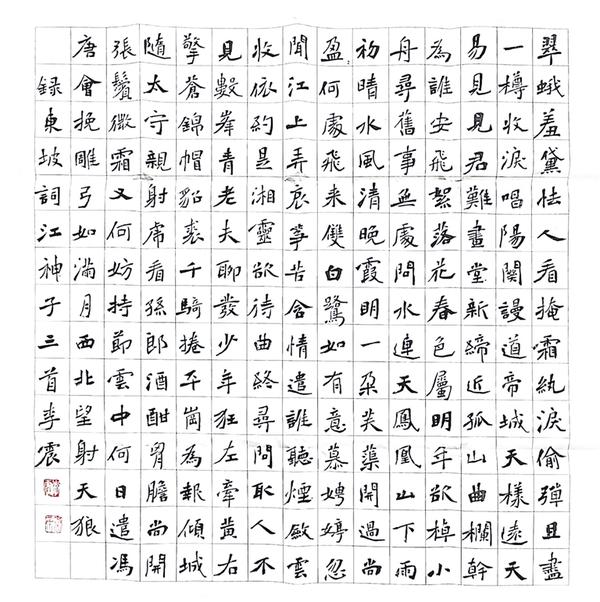 翠蛾羞黛怯人看掩霜紈淚偷彈且盡
一樽收淚唱陽關謾道帝城天樣遠天
易見見君難畫堂新締近孤山曲欄幹
為誰安飛絮落花春色屬明年欲棹小
舟尋舊事無處問水連天鳳凰山下雨
初晴水風清晚霞明一朵芙蕖開過尚
盈何處飛来雙白鷺如有意慕娉婷忽
聞江上弄哀箏苦含情遣誰聽煙斂雲
收依約是湘靈欲待曲終尋問取人不
見數峯青老夫聊發少年狂左牽黃右
擎蒼錦帽貂裘千騎捲平崗為報傾城
隨太守親射虎看孫郎酒酣胷膽尚開
張鬢微霜又何妨持節雲中何日遣馮
唐會挽雕弓如滿月西北望射天狼
録東坡詞江神子三首李震